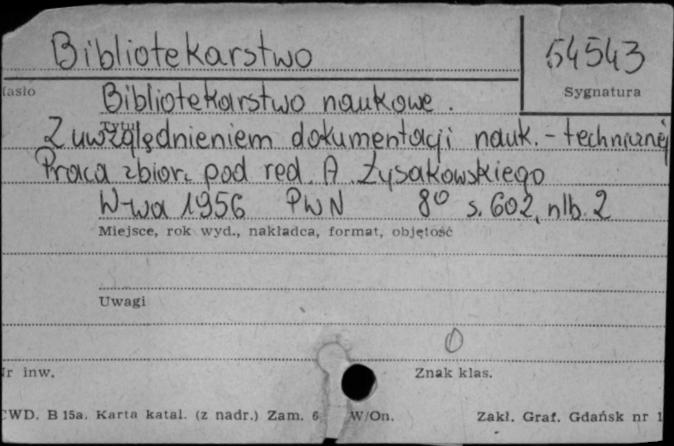 Bibliotekarstwo
54543
Hasło
Sygnatura
Bibliotekarstwo naukowe.
Z uwzględnieniem dokumentacji nauk.-technicznej
Praca zbior. pod red. A. Łysakowskiego
W-wa 1956 PWN 8° s. 602, nlb. 2
Miejsce, rok wyd., nakładca, format, objętość
Uwagi
0
Nr inw.
Znak klas.
CWD. B 15a. Karta katal. (z nadr.) Zam. 6 W/On. Zakł. Graf. Gdańsk nr 1